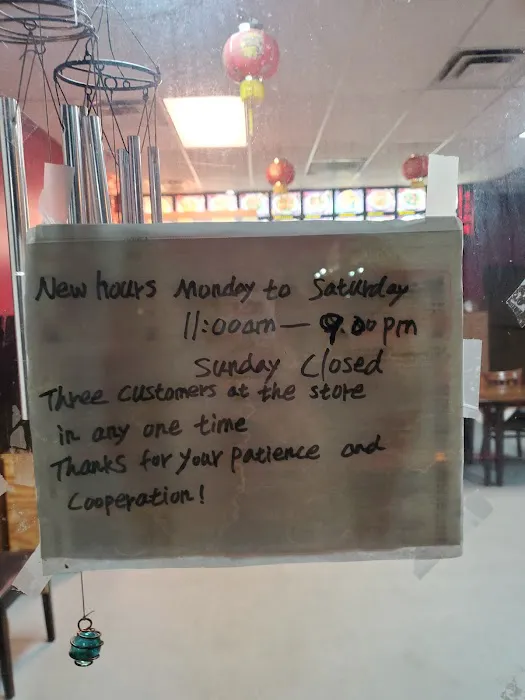 New hours Monday to Saturday
11:00am — 9:00 pm
Sunday Closed
Three customers at the store
in any one time
Thanks for your patience and
Cooperation!